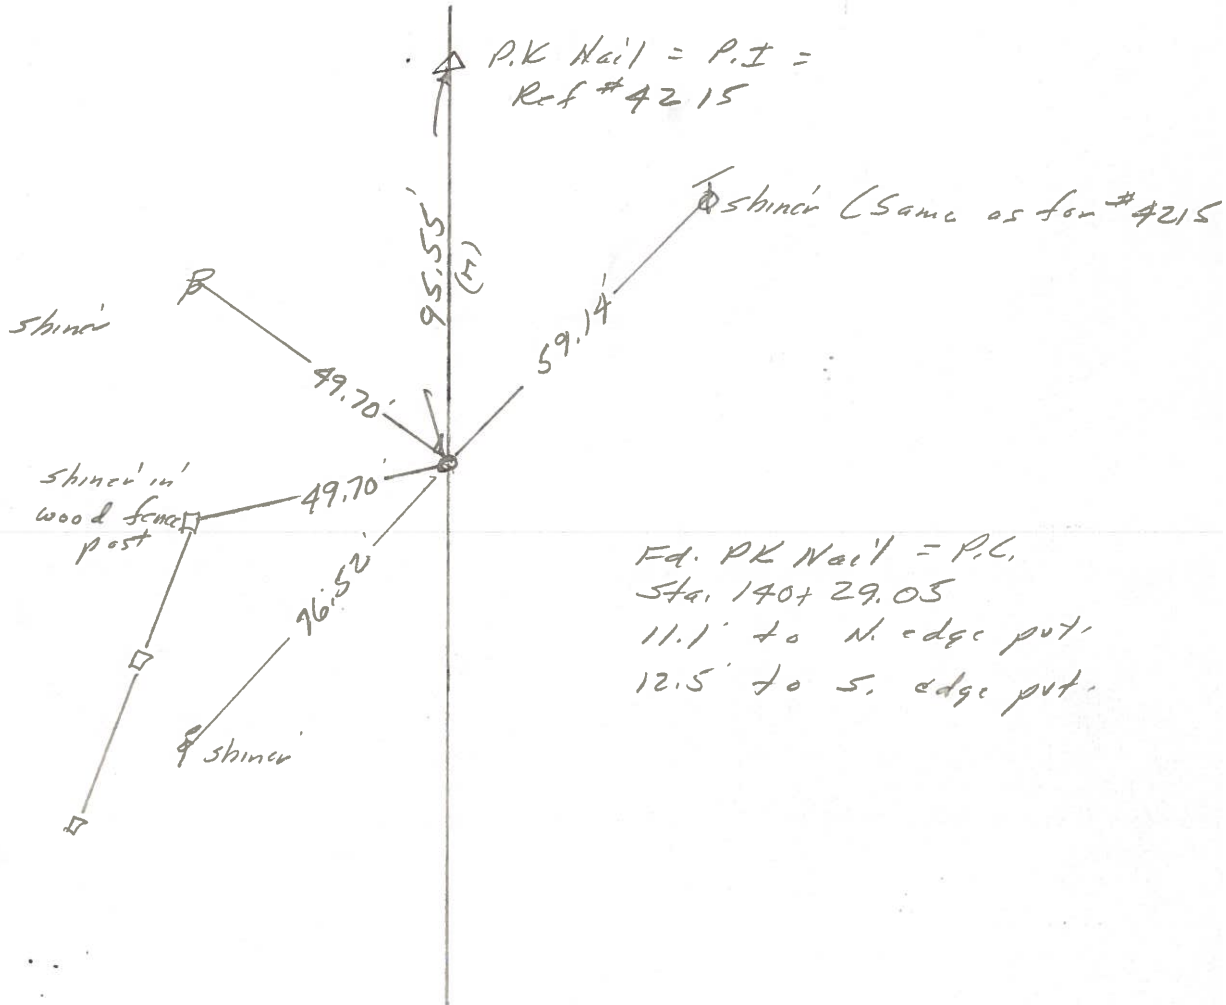 P.K Nail = P.I =
Ref #4215
shiner (Same as for #4215
95.55'
(M)
59.14'
shiner
49.70'
shiner in
wood fence
post
49.70'
76.52'
shiner
Fd. PK Nail = P.C.
Sta. 140+29.05
11.1' to N. edge pvt.
12.5' to S. edge pvt.